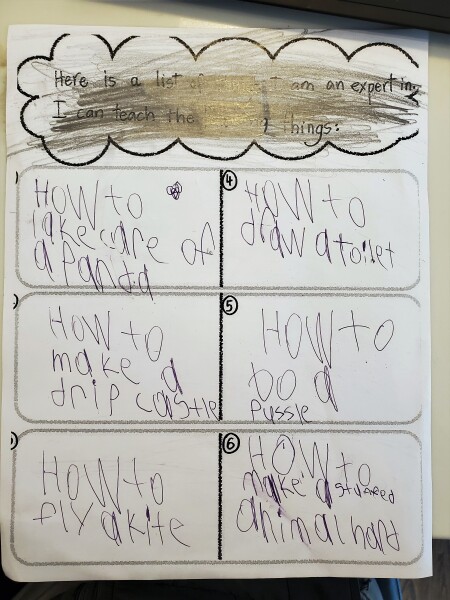 Here is a list of I am an expert in,
I can teach the things:
HOW to
take care of
a panda
HOW to
make a
drip castle
HOW to
fly a kite
4
HOW to
draw a toilet
5
HOW to
Do a
Pussle
6
HOW to
make a
animal